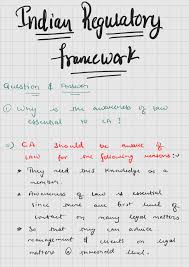 Indian Regulatory
framework
Question & Answer
① Why is the awareness of law
essential to CA ?
a) CA should be aware of
law for the following reasons :-
* They need this knowledge as a
member.
* Awareness of law is essential
since are first level of
contact on many legal matters
* So that they can advice
management & clients on legal
matters @ threshold level.